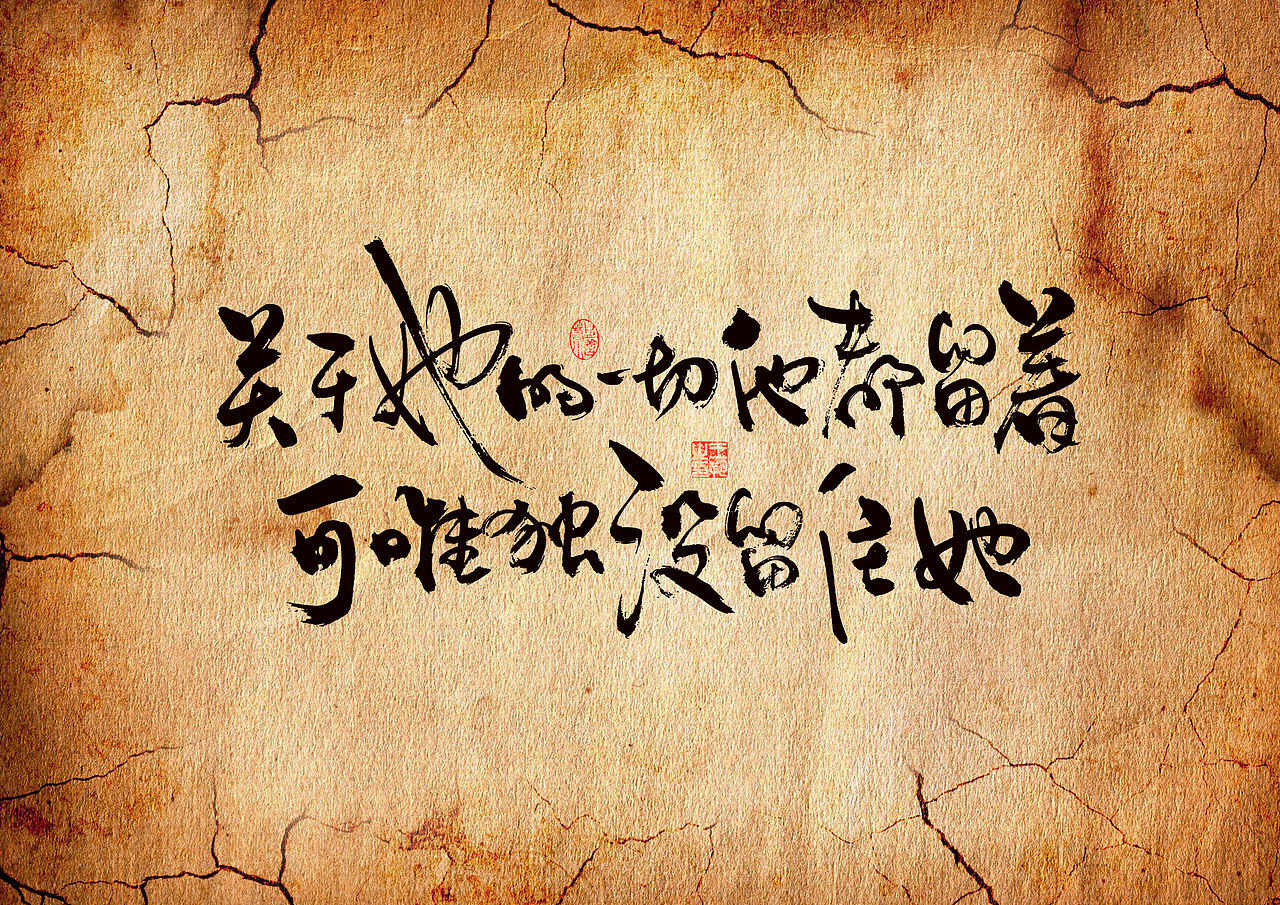 关于她的一切他都留着
可唯独没留住她